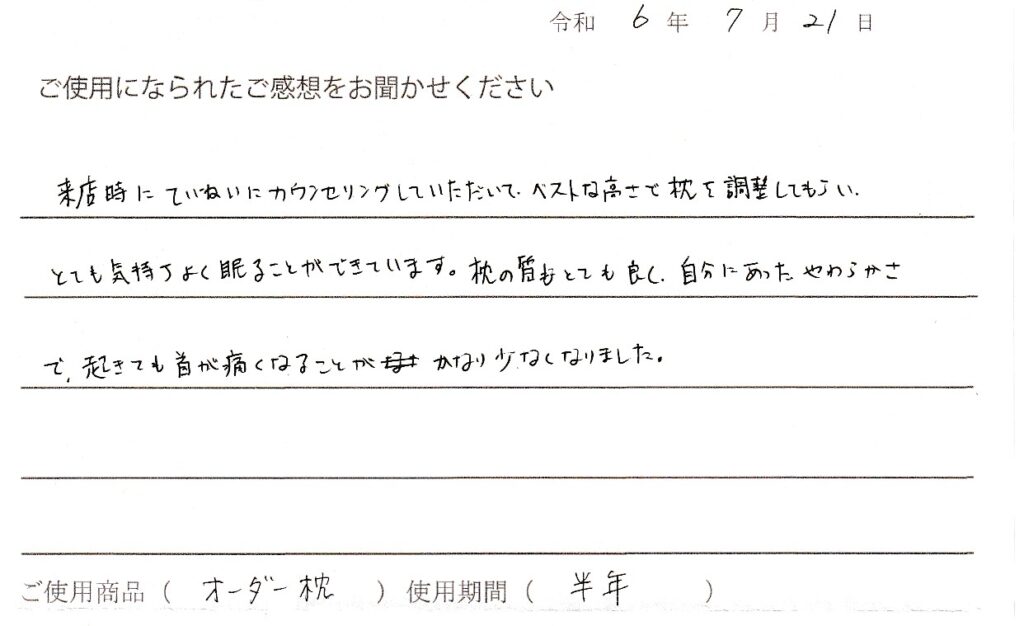 令和 6 年 7 月 21 日
ご使用になられたご感想をお聞かせください
来店時にていねいにカウンセリングしていただいて、ベストな高さで枕を調整してもらい、
とても気持ちよく眠ることができています。枕の質もとても良く、自分にあったやわらかさ
で、起きても首が痛くなることがかなり少なくなりました。
ご使用商品（ オーダー枕 ）使用期間（ 半年 ）